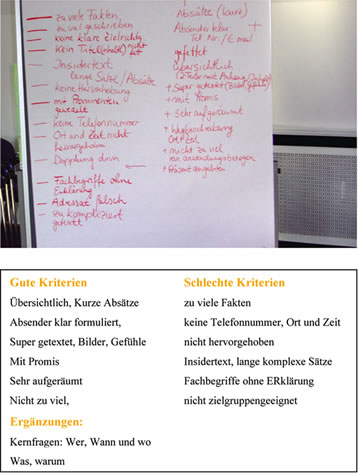 — zu viele Fakten,
zu viel geschrieben
— keine klare Zielrichtg.
— kein Titel (Inhalt) nicht fett
— Insidertext
lange Sätze / Absätze
— keine Hervorhebung
— mit Prominenten
— keine Telefonnummer
— Ort und Zeit nicht
hervorgehoben
— Dopplung drin
— Fachbegriffe ohne
Erklärung
— Adressat falsch
— zu kompliziert
Absätze (kurz)
Absender klar +
Tel Nr. / E-mail
gefettet
übersichtlich
+ Super getextet (Bilder, Gefühle)
+ mit Promis
+ Sehr aufgeräumt
+ nicht zu viel
Gute Kriterien
Übersichtlich, Kurze Absätze
Absender klar formuliert,
Super getextet, Bilder, Gefühle
Mit Promis
Sehr aufgeräumt
Nicht zu viel,
Ergänzungen:
Kernfragen: Wer, Wann und wo
Was, warum
Schlechte Kriterien
zu viele Fakten
keine Telefonnummer, Ort und Zeit
nicht hervorgehoben
Insidertext, lange komplexe Sätze
Fachbegriffe ohne ERklärung
nicht zielgruppengeeignet